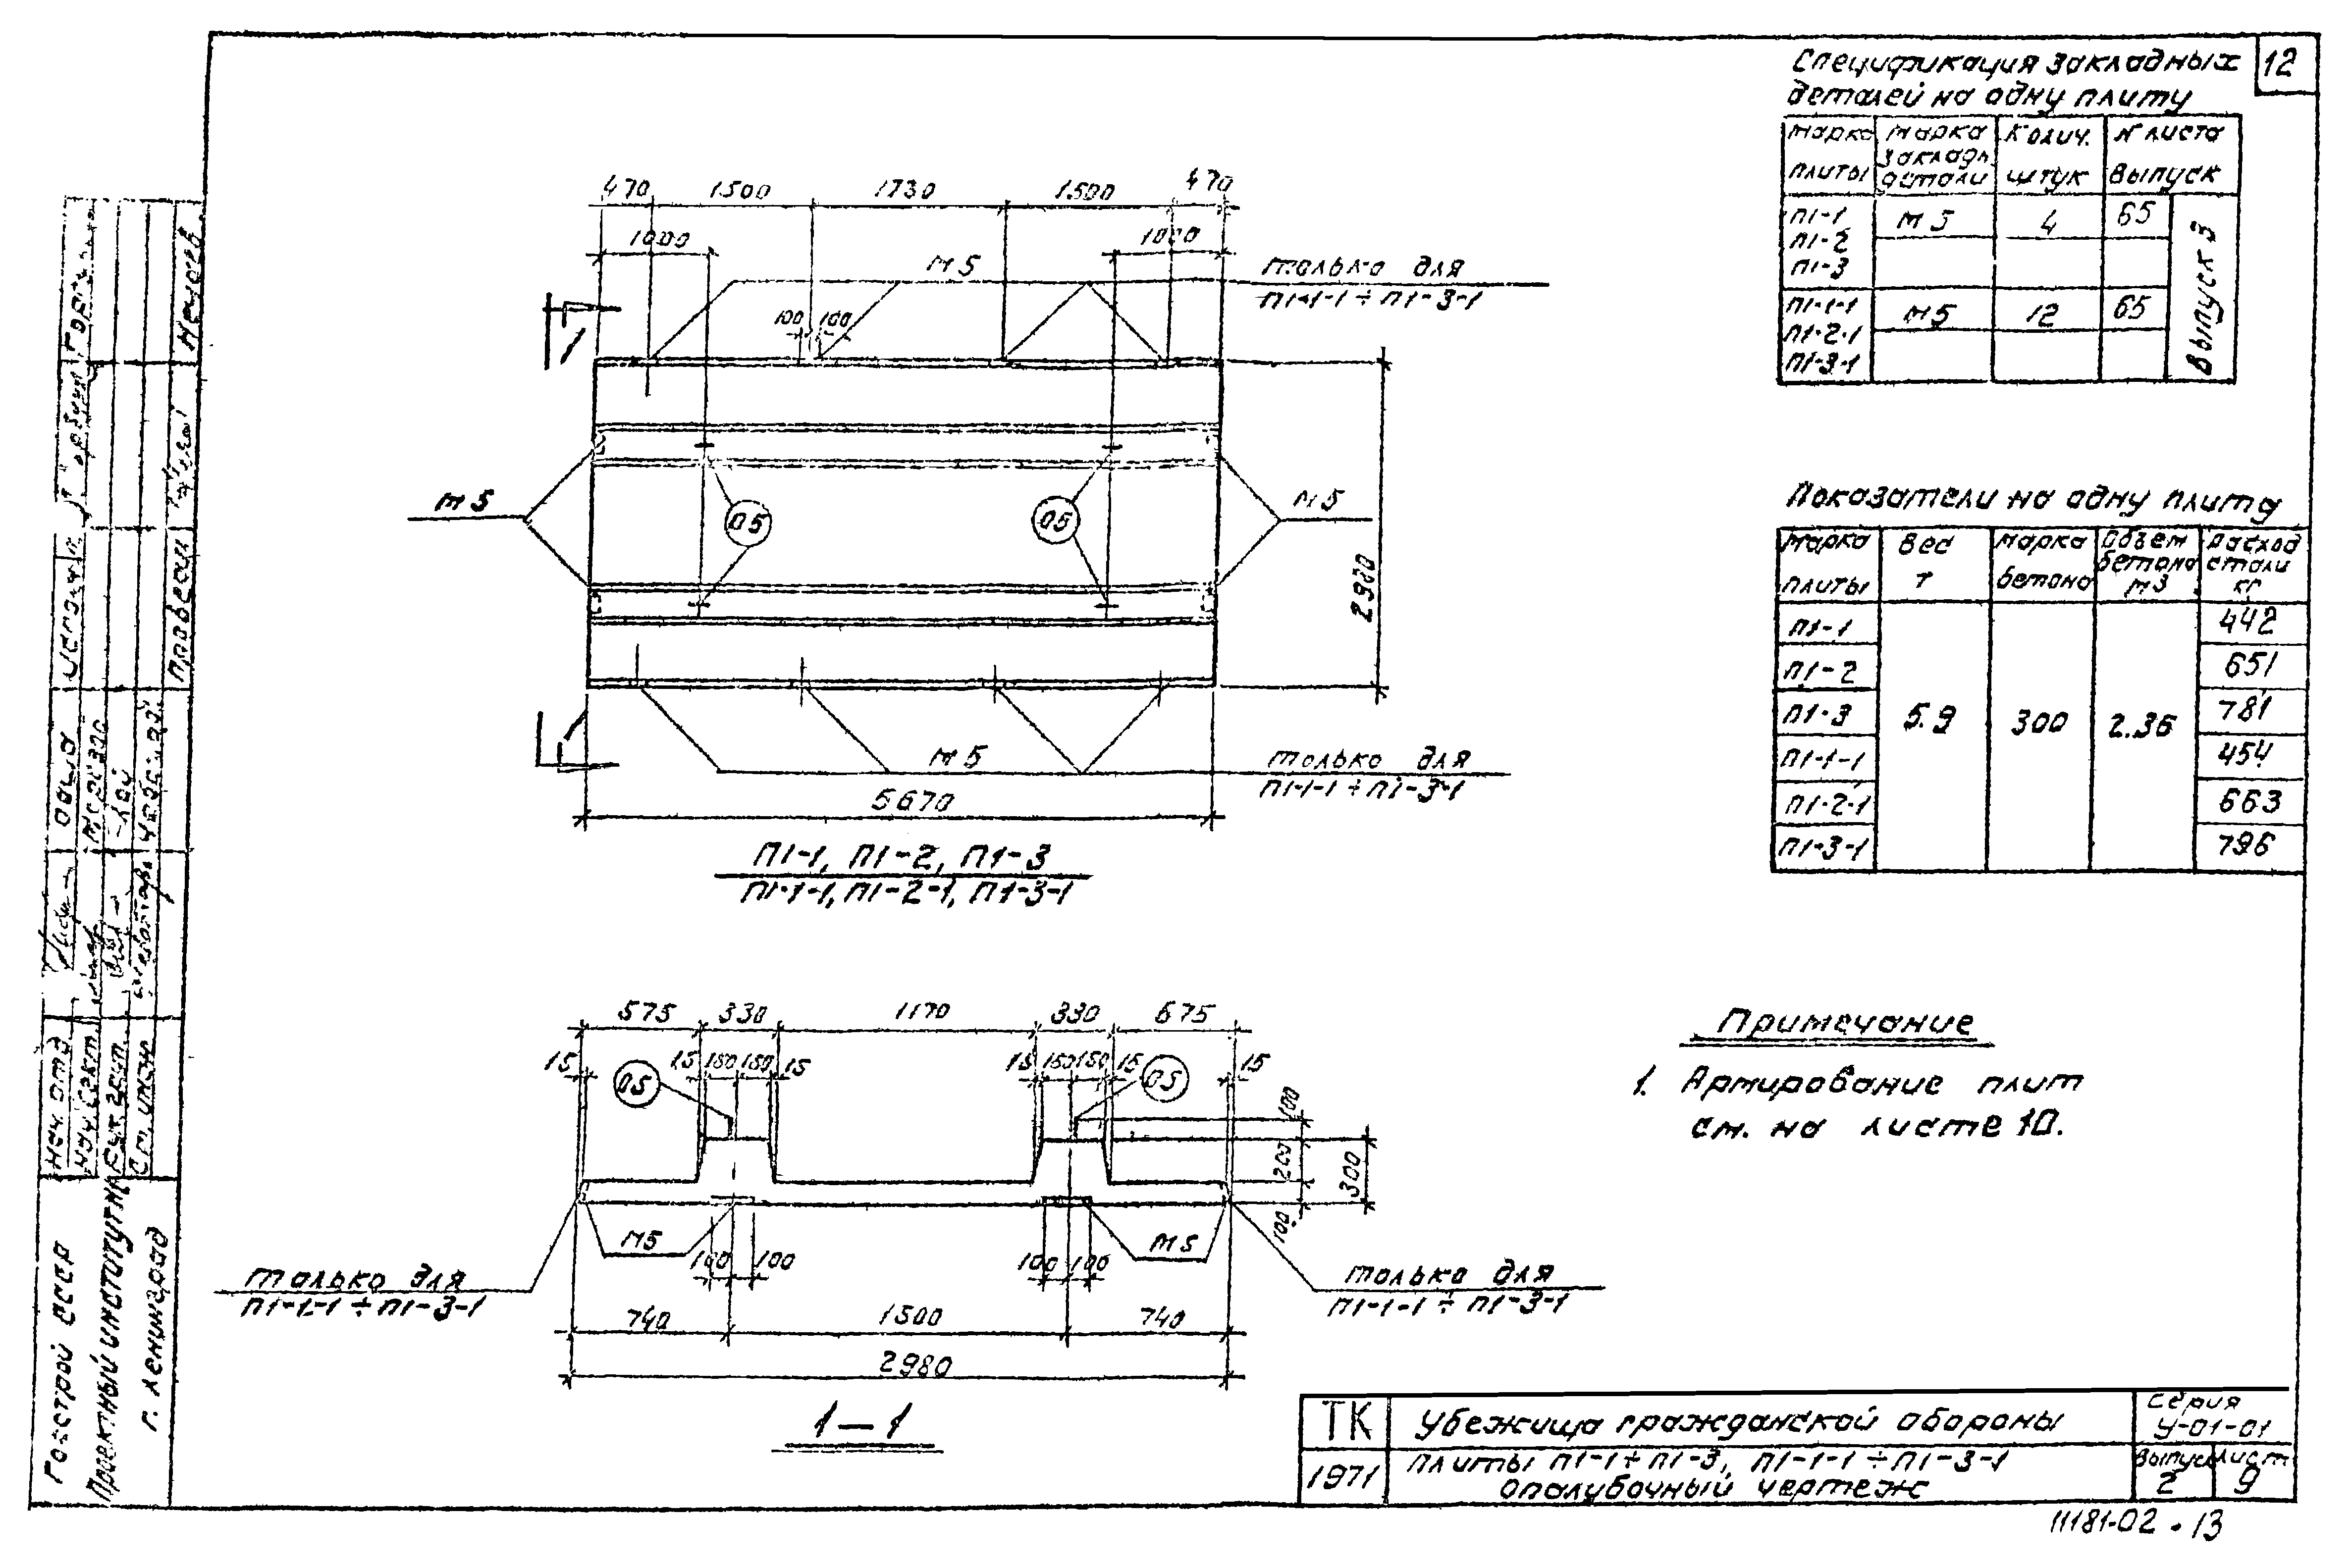 12
Спецификация закладных
деталей на одну плиту
Марка плиты | Марка закладн. детали | Колич. штук | N листа выпуск
П1-1 | М5 | 4 | 65
П1-2
П1-3
П1-1-1 | М5 | 12 | 65
П1-2-1
П1-3-1
Выпуск 3
470 1500 1730 1500 470
1000 1000
М5
только для
П1-1-1 ÷ П1-3-1
100 100
1
М5
05
05
М5
2980
1
М5
только для
П1-1-1 ÷ П1-3-1
5670
П1-1, П1-2, П1-3
П1-1-1, П1-2-1, П1-3-1
Показатели на одну плиту
Марка плиты | Вес т | Марка бетона | Объем бетона м3 | Расход стали кг
П1-1 | 442
П1-2 | 651
П1-3 | 5.9 | 300 | 2.36 | 781
П1-1-1 | 454
П1-2-1 | 663
П1-3-1 | 796
575 330 1170 330 675
15 15 150 150 15 15 150 150 15 15
05
05
100
200
300
100
М5
М5
100 100
100 100
только для
П1-1-1 ÷ П1-3-1
только для
П1-1-1 ÷ П1-3-1
740 1500 740
2980
1-1
Примечание
1. Армирование плит
см. на листе 10.
Нач. отд.
Нач. сект.
Рук. груп.
Ст. инж.
Проверил
Госстрой СССР
Проектный институт
г. Ленинград
ТК
Убежища гражданской обороны
Серия
У-01-01
1971
Плиты П1-1÷П1-3, П1-1-1÷П1-3-1
Опалубочный чертеж
Выпуск
2
Лист
9
11181-02 . 13